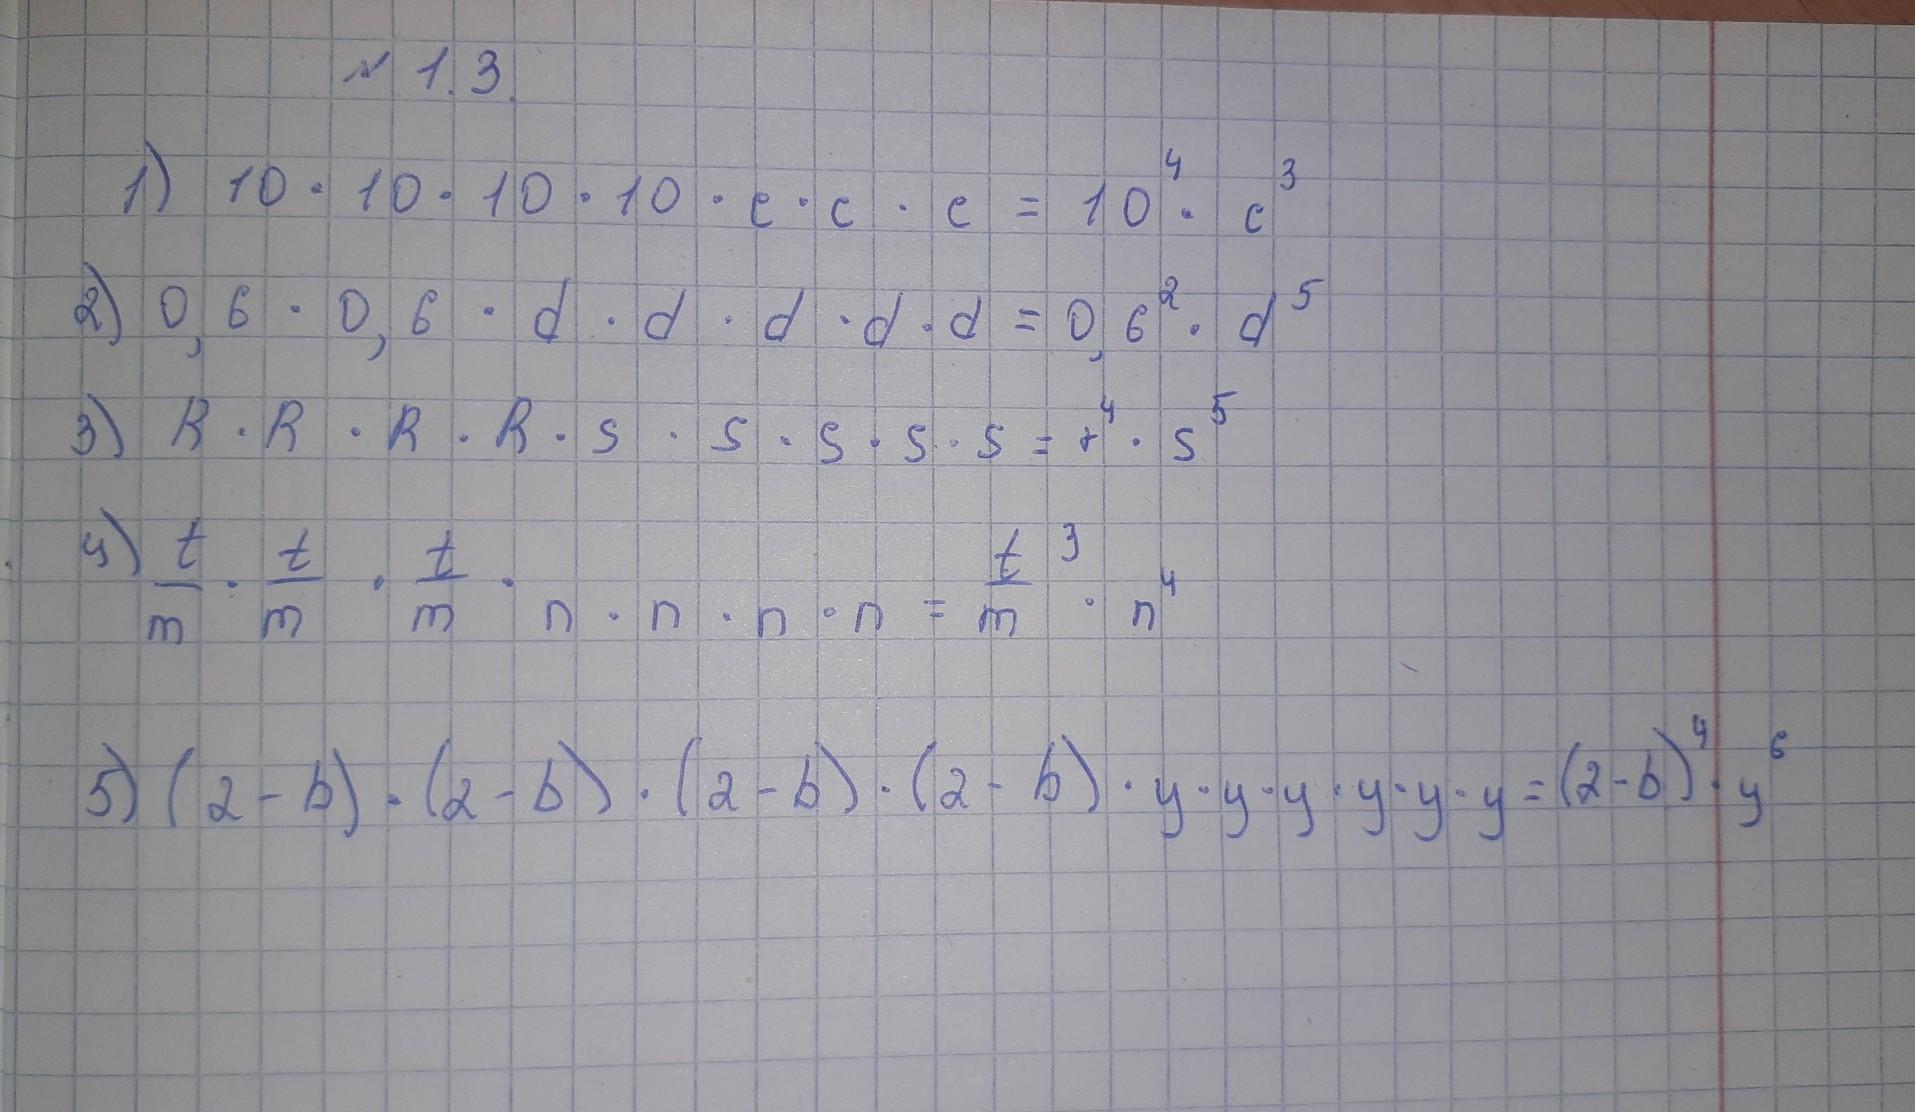 № 1.3.
1) 10 · 10 · 10 · 10 · c · c · c = 10⁴ · c³
2) 0,6 · 0,6 · d · d · d · d · d = 0,6² · d⁵
3) R · R · R · R · s · s · s · s · s = r⁴ · s⁵
4) t/m · t/m · t/m · n · n · n · n = t/m ³ · n⁴
5) (2-b) · (2-b) · (2-b) · (2-b) · y · y · y · y · y · y = (2-b)⁴ · y⁶